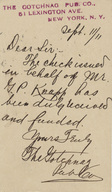 THE GOTCHNAG PUB. CO.
81 LEXINGTON AVE.
NEW YORK, N. Y.
Sept. 11/11
Dear Sir:-
The check issued
in behalf of Mr.
G. P. Knapp has
been duly received
and funded.
Yours Truly
The Gotchnag
Pub. Co.